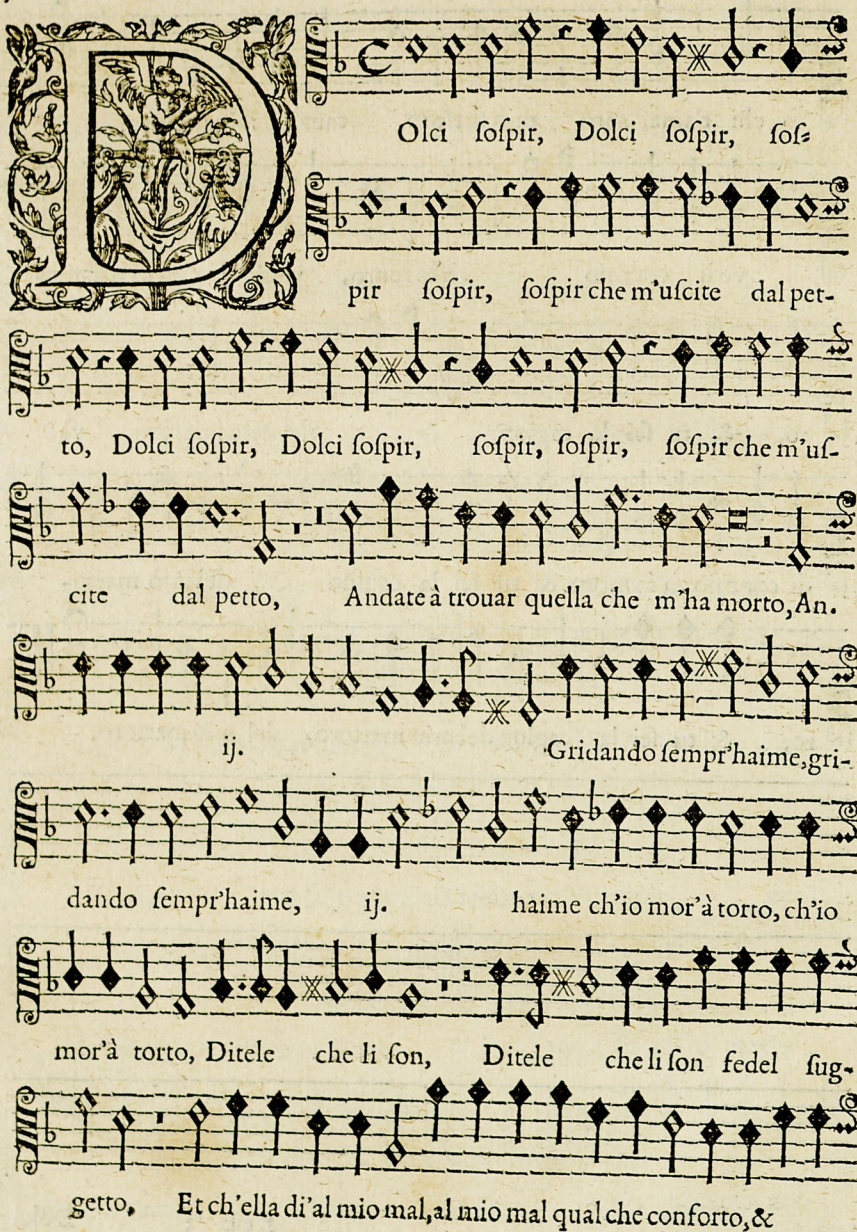 D
Olci ſoſpir, Dolci ſoſpir, ſoſ-
pir ſoſpir, ſoſpir che m'uſcite dal pet-
to, Dolci ſoſpir, Dolci ſoſpir, ſoſpir, ſoſpir, ſoſpir che m'uſ-
cite dal petto, Andate à trouar quella che m'ha morto, An.
ij. Gridando ſempr'haime, gri-
dando ſempr'haime, ij. haime ch'io mor'à torto, ch'io
mor'à torto, Ditele che li ſon, Ditele che li ſon fedel ſug-
getto, Et ch'ella di'al mio mal, al mio mal qual che conforto, &